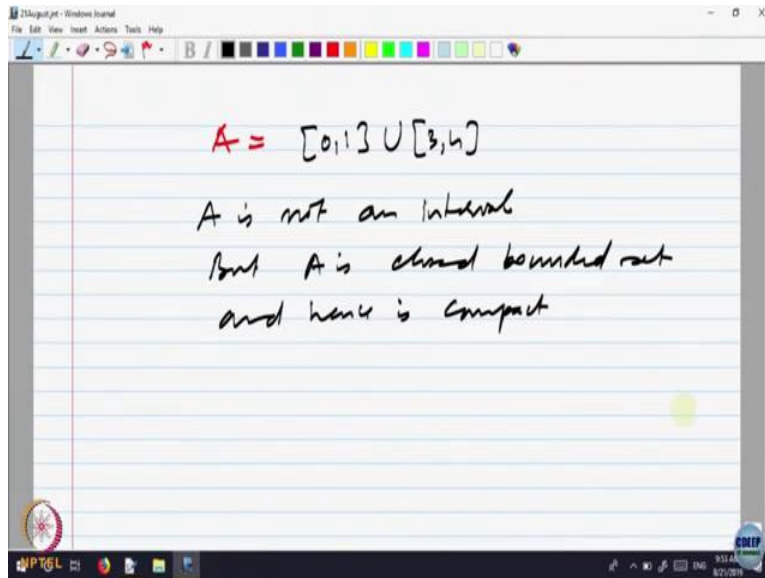 21August.jnt - Windows Journal
File Edit View Insert Actions Tools Help
B I
A = [0,1] ∪ [3,4]
A is not an interval
But A is closed bounded set
and hence is compact
NPTEL
CDEEP
ENG
9:53 AM
8/21/2019